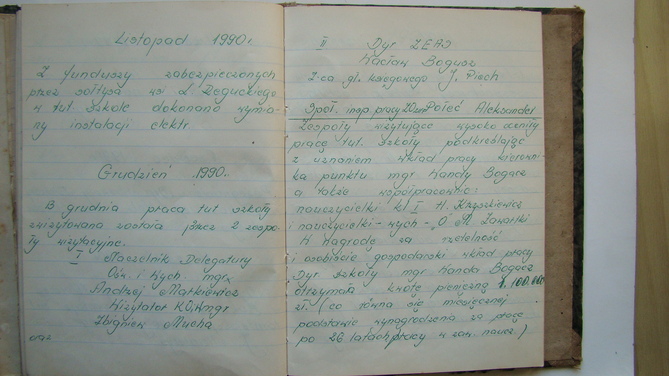 Listopad 1990 r
Z funduszy zabezpieczonych
przez sołtysa wsi L. Deguckiego
w tut. szkole dokonano wymia-
ny instalacji elektr
Grudzień 1990.
B grudnia praca tut szkoły
zwizytowana została przez 2 zespo-
ły wizytacyjne.
I Naczelnik Delegatury
Ośw. i Wych. mgr
Andrzej Markiewicz
Wizytator K.O.W mgr
Zbigniew Mucha
oraz
II Dyr ZEAS
Wacław Bogusz
Z-ca gł. księgowego J. Piech
Społ. insp. pracy ZUM Połeć Aleksander
Zespoły wizytujące wysoko oceniły
pracę tut. szkoły podkreślając
z uznaniem wkład pracy kierowni-
ka punktu mgr Wandy Bogacz
a także współpracownic:
nauczycielki kl I H. Krzyszkiewicz
i nauczycielki - wych - "O" M. Zawartki
W Nagrodę za rzetelność
i osobiście gospodarski wkład pracy
Dyr Szkoły mgr Wanda Bogacz
otrzymała kwotę pieniężną 1.100.000
zł. (co równa się miesięcznej
podstawie wynagrodzenia za pracę
po 26 latach pracy w zaw. naucz.)